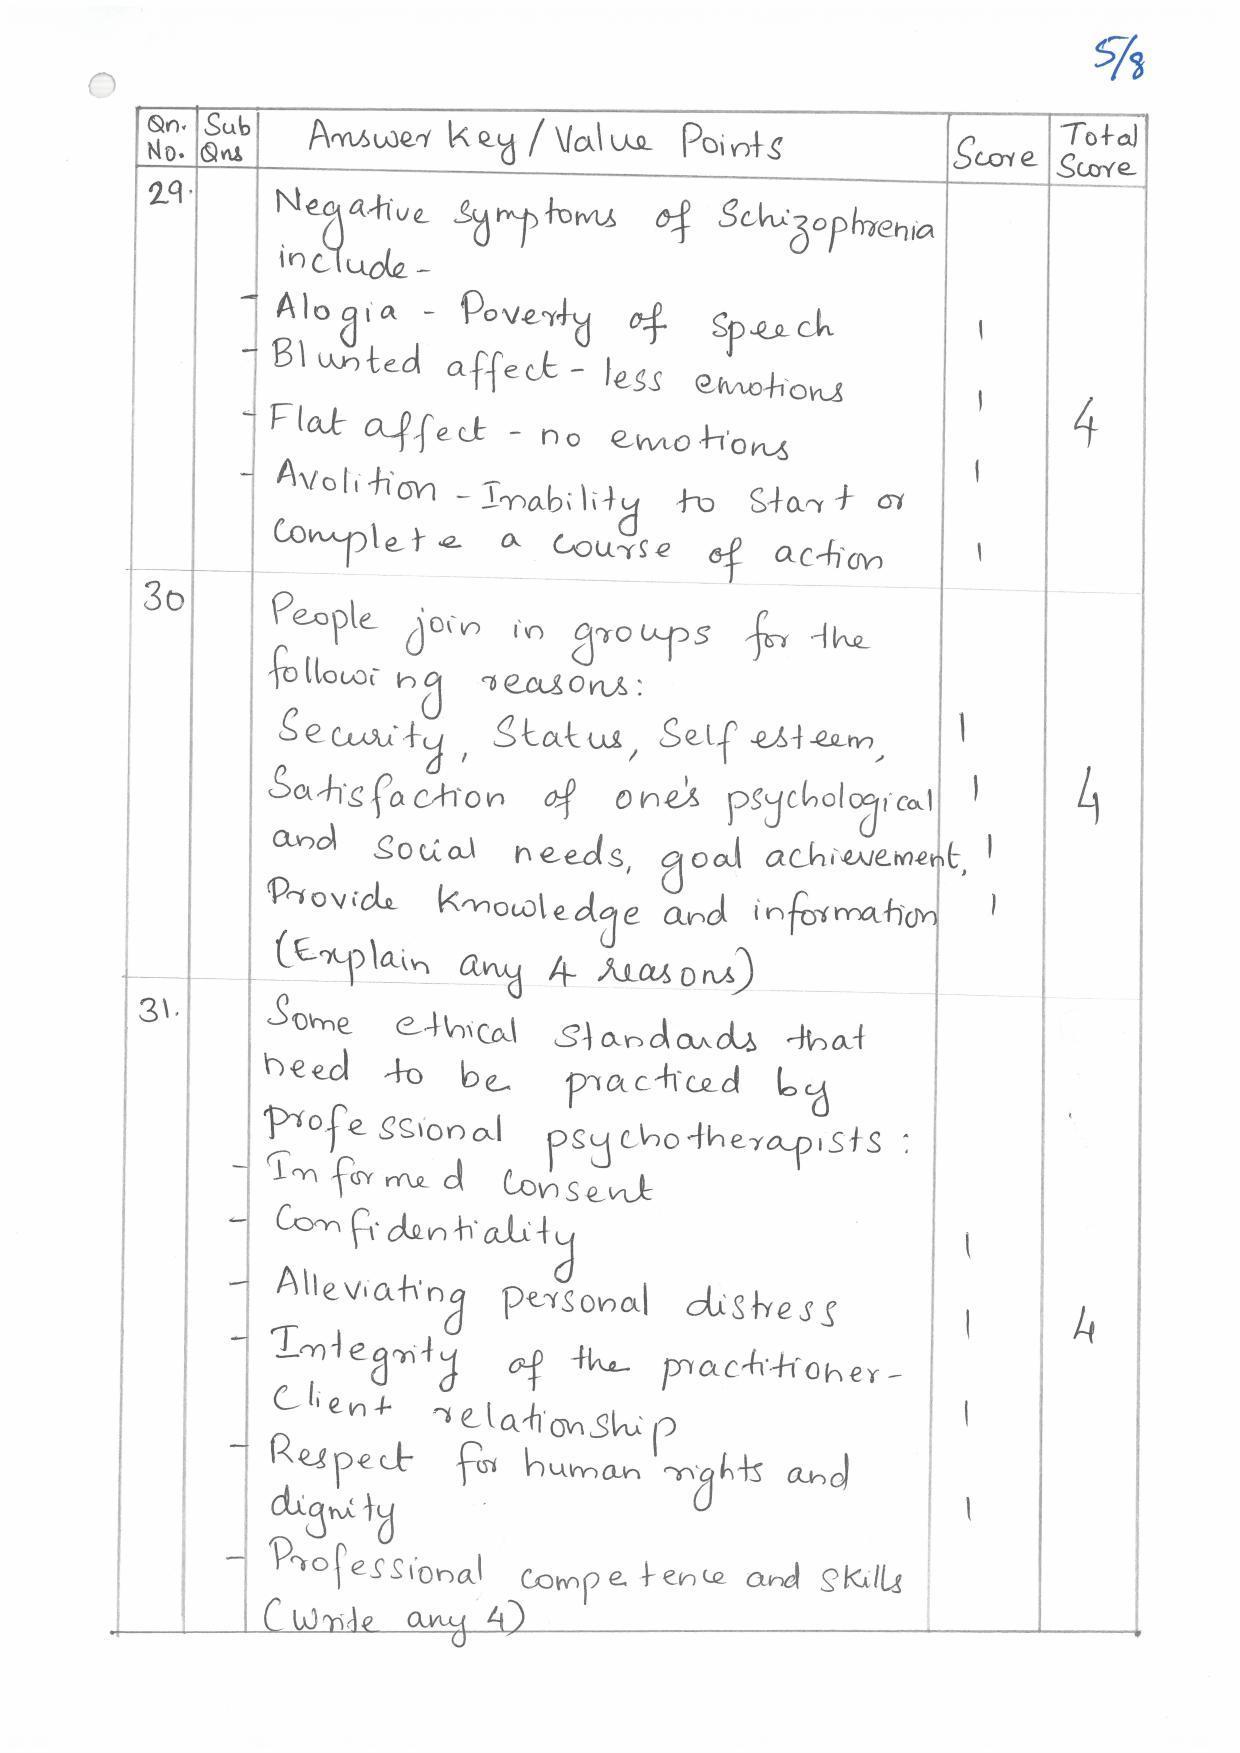 5/8
Qn. No. Sub Qns Answer Key/Value Points Score Total Score
29.
Negative symptoms of Schizophrenia
include -
- Alogia - Poverty of speech 1
- Blunted affect - less emotions 1
- Flat affect - no emotions 1
4
- Avolition - Inability to start or
complete a course of action 1
30
People join in groups for the
following reasons:
Security, Status, Self esteem, 1
Satisfaction of one's psychological 1
4
and social needs, goal achievement, 1
Provide knowledge and information 1
(Explain any 4 reasons)
31.
Some ethical standards that
need to be practiced by
professional psychotherapists:
- Informed consent
- Confidentiality 1
- Alleviating personal distress 1
4
- Integrity of the practitioner-
client relationship 1
- Respect for human rights and
dignity 1
- Professional competence and skills
(Write any 4)